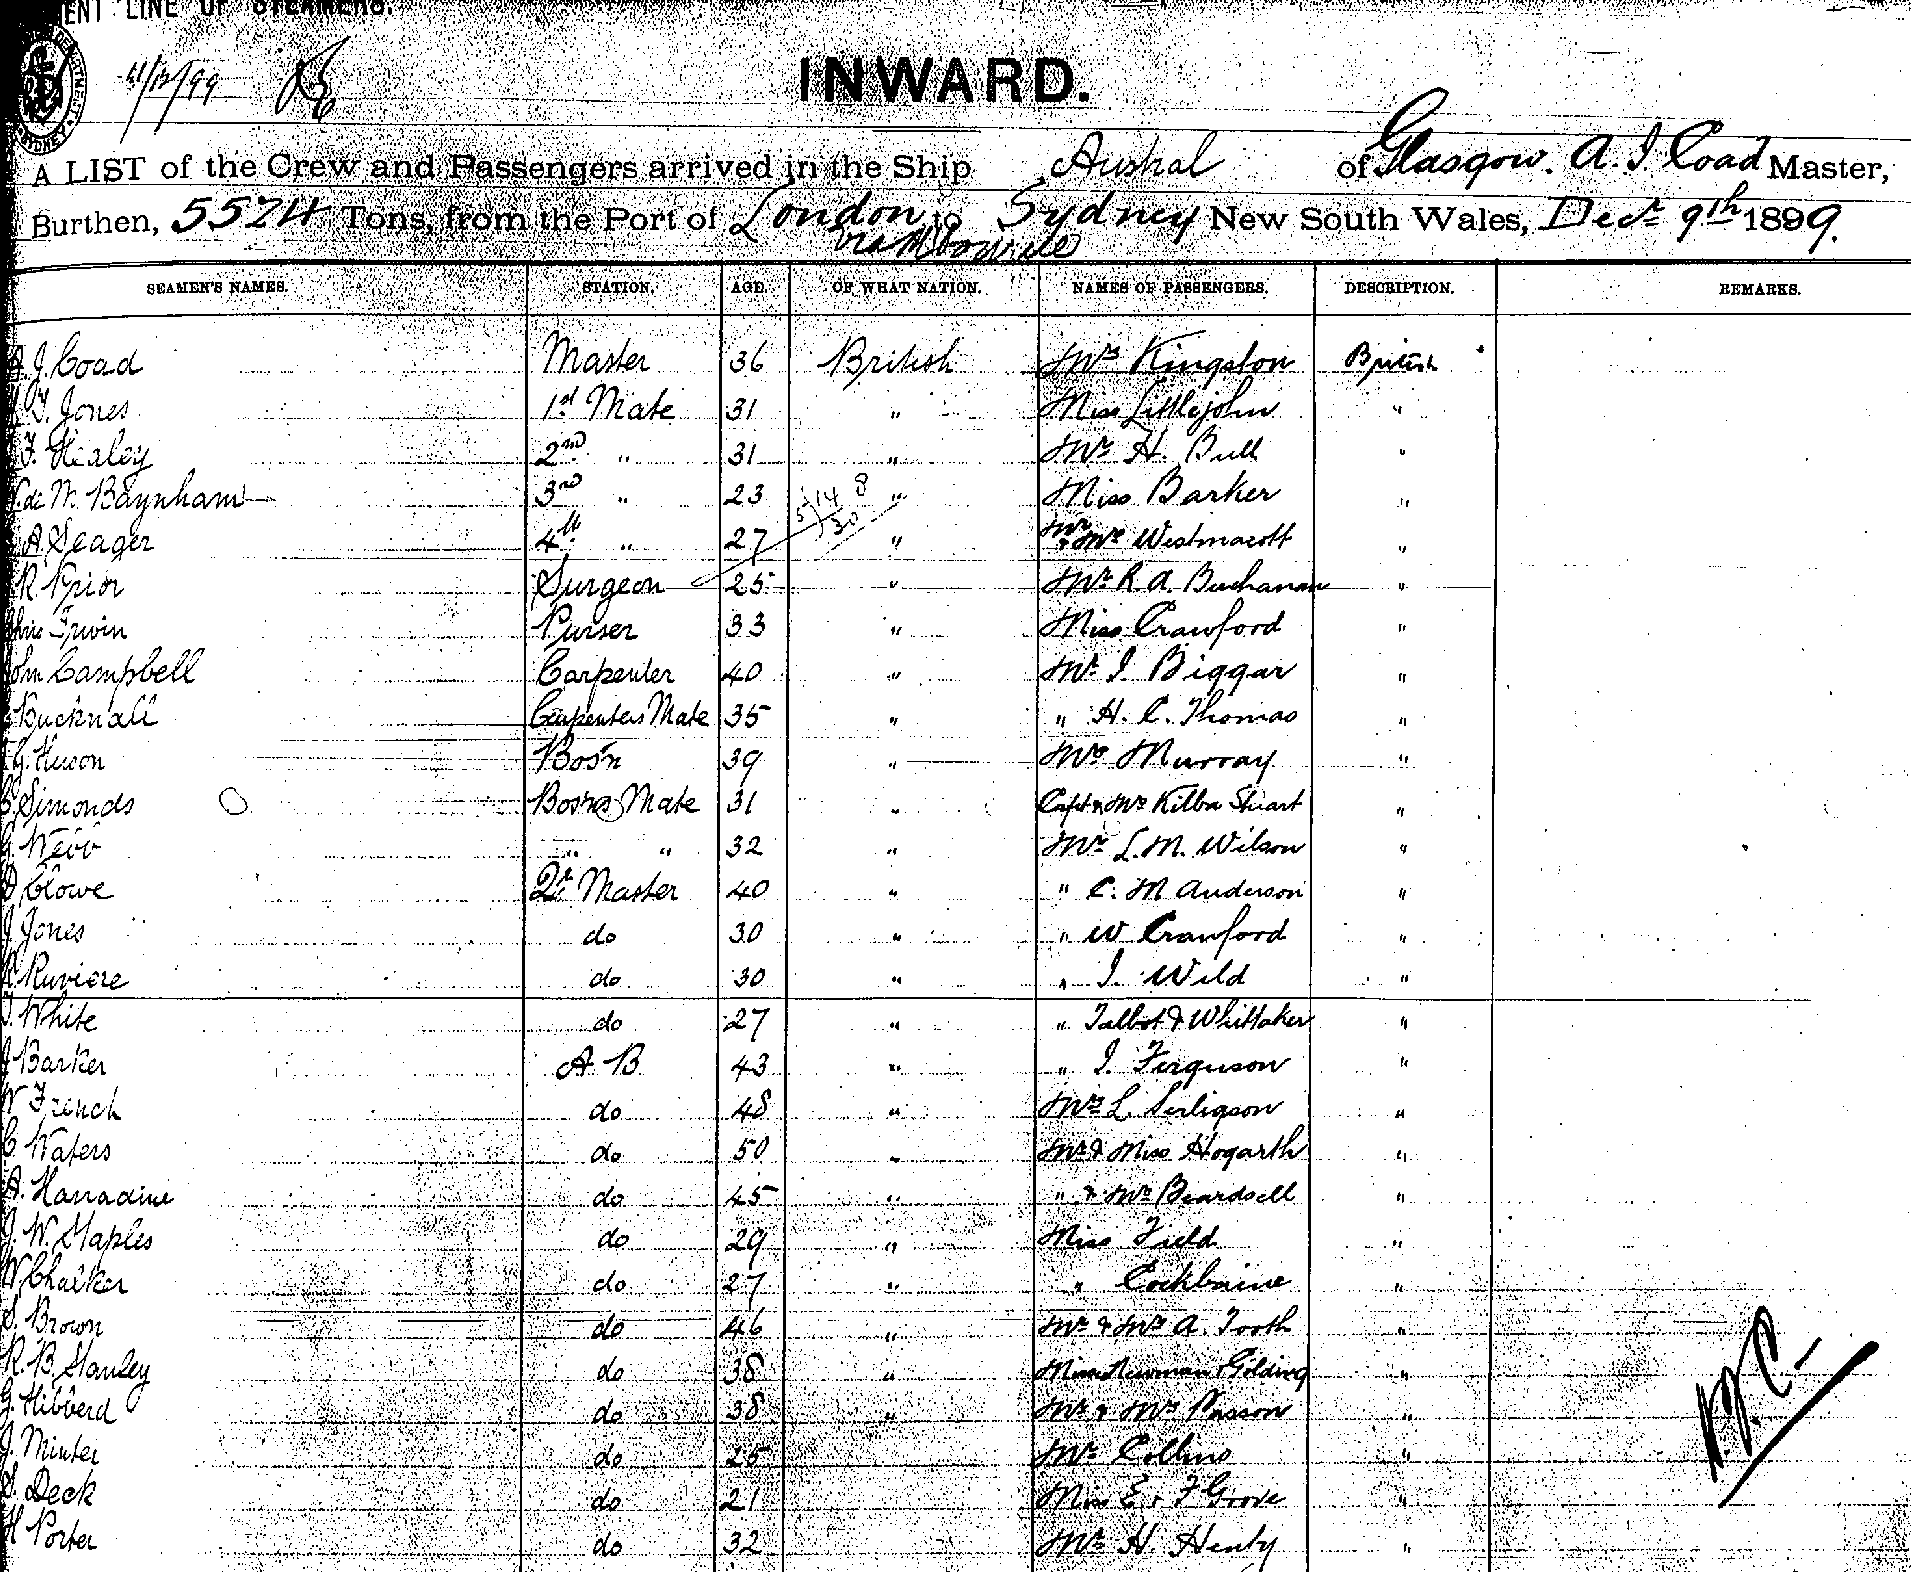 ENT LINE OF STEAMERS.
INWARD.
A LIST of the Crew and Passengers arrived in the Ship Austral of Glasgow. A. J. Coad Master,
Burthen, 5524 Tons, from the Port of London to Sydney New South Wales, Decr 9th 1899.
via Melbourne
SEAMEN'S NAMES. STATION. AGE. OF WHAT NATION. NAMES OF PASSENGERS. DESCRIPTION. REMARKS.
A. J. Coad Master 36 British Mrs Kingston British
Jones 1st Mate 31 " Miss Littlejohn "
F. Healey 2nd " 31 " Mr H. Bull "
de M. Baynham 3rd " 23 " Miss Barker "
A. Seager 4th " 27 " Mr & Mrs Westmacott "
R Prior Surgeon 25 " Mr R. A. Buchanan "
Irwin Purser 33 " Miss Crawford "
John Campbell Carpenter 40 " Mr J. Biggar "
Bucknall Carpenters Mate 35 " " H. C. Thomas "
Huson Bos'n 39 " Mrs Murray "
Simonds Bosns Mate 31 " Capt & Mrs Kilba Stuart "
Webb " " 32 " Mr L. M. Wilson "
Clowe Qr Master 40 " " C. M Anderson "
J. Jones do 30 " " W Crawford "
Ruviere do 30 " " J. Wild "
J. White do 27 " " Talbot & Whittaker "
J Barker A B 43 " " J. Ferguson "
W French do 48 " Mrs L. Serligson "
C Waters do 50 " Mr & Miss Hogarth "
A. Harradine do 45 " " & Mrs Beardsell "
J. W. Staples do 29 " Miss Field "
W Chalker do 27 " " Cockbaine "
S. Brown do 46 " Mr & Mrs A. Tooth "
R. B. Stanley do 38 " Misses Newman & Golding "
G. Hibberd do 38 " Mr & Mrs Passon "
J. Minter do 25 " Mr Collins "
S. Deck do 21 Miss E & F Grove "
H Porter do 32 Mr H. Henty "